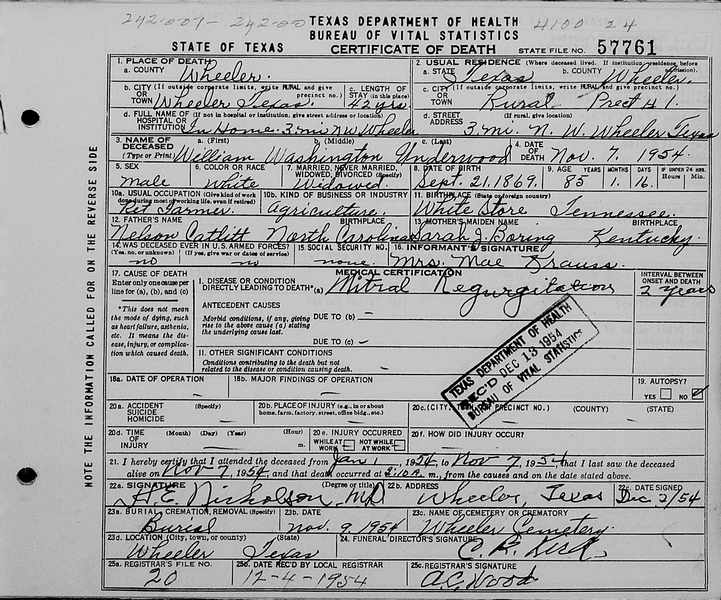 TEXAS DEPARTMENT OF HEALTH 4100 24
BUREAU OF VITAL STATISTICS
STATE OF TEXAS CERTIFICATE OF DEATH STATE FILE NO. 57761
1. PLACE OF DEATH 2. USUAL RESIDENCE (Where deceased lived. If institution: residence before admission).
a. COUNTY Wheeler. a. STATE Texas b. COUNTY Wheeler
b. CITY (If outside corporate limits, write RURAL and give precinct no.) OR TOWN Wheeler Texas. c. LENGTH OF STAY (in this place) 42 yrs.
c. CITY (If outside corporate limits, write RURAL and give precinct no.) OR TOWN Rural Prect # 1.
d. FULL NAME OF (If not in hospital or institution, give street address or location) HOSPITAL OR INSTITUTION In Home 3 mi N W Wheeler
d. STREET ADDRESS (If rural, give location) 3 mi. N. W. Wheeler Texas
3. NAME OF DECEASED (Type or Print) a. (First) b. (Middle) c. (Last) William Washington Underwood
4. DATE OF DEATH Nov. 7. 1954.
5. SEX male
6. COLOR OR RACE White
7. MARRIED, NEVER MARRIED, WIDOWED, DIVORCED (Specify) Widowed
8. DATE OF BIRTH Sept. 21. 1869.
9. AGE YEARS 85 MONTHS 1. DAYS 16. IF UNDER 24 HRS. Hours Min.
10a. USUAL OCCUPATION (Give kind of work done during most of working life, even if retired) Ret Farmer.
10b. KIND OF BUSINESS OR INDUSTRY Agriculture.
11. BIRTHPLACE (State or foreign country) White Store Tennessee.
12. FATHER'S NAME BIRTHPLACE Nelson Catlitt North Carolina
13. MOTHER'S MAIDEN NAME BIRTHPLACE Sarah J. Boring Kentucky.
14. WAS DECEASED EVER IN U.S. ARMED FORCES? (Yes, no, or unknown) (If yes, give war or dates of service) no no
15. SOCIAL SECURITY NO. none.
16. INFORMANT'S SIGNATURE Mrs. Mae Krauss.
MEDICAL CERTIFICATION
17. CAUSE OF DEATH
Enter only one cause per line for (a), (b), and (c)
*This does not mean the mode of dying, such as heart failure, asthenia, etc. It means the disease, injury, or complication which caused death.
I. DISEASE OR CONDITION DIRECTLY LEADING TO DEATH* (a) Mitral Regurgitation
INTERVAL BETWEEN ONSET AND DEATH 2 years
ANTECEDENT CAUSES
Morbid conditions, if any, giving rise to the above cause (a) stating the underlying cause last.
DUE TO (b) -
DUE TO (c) -
II. OTHER SIGNIFICANT CONDITIONS
Conditions contributing to the death but not related to the disease or condition causing death.
TEXAS DEPARTMENT OF HEALTH
REC'D DEC 13 1954
BUREAU OF VITAL STATISTICS
18a. DATE OF OPERATION 18b. MAJOR FINDINGS OF OPERATION 19. AUTOPSY? YES NO
20a. ACCIDENT SUICIDE HOMICIDE (Specify)
20b. PLACE OF INJURY (e.g., in or about home, farm, factory, street, office bldg., etc.)
20c. (CITY, TOWN, OR PRECINCT NO.) (COUNTY) (STATE)
20d. TIME OF INJURY (Month) (Day) (Year) (Hour) m.
20e. INJURY OCCURRED WHILE AT WORK NOT WHILE AT WORK
20f. HOW DID INJURY OCCUR?
21. I hereby certify that I attended the deceased from Jan 1, 1954, to Nov 7, 1954, that I last saw the deceased
alive on Nov 7, 1954, and that death occurred at 2:10 P. m., from the causes and on the date stated above.
22a. SIGNATURE (Degree or title) H. E. Nicholson, MD
22b. ADDRESS Wheeler, Texas
22c. DATE SIGNED Dec 2/54
23a. BURIAL, CREMATION, REMOVAL (Specify) Burial
23b. DATE Nov. 9. 1954
23c. NAME OF CEMETERY OR CREMATORY Wheeler Cemetery.
23d. LOCATION (City, town, or county) (State) Wheeler Texas
24. FUNERAL DIRECTOR'S SIGNATURE
25a. REGISTRAR'S FILE NO. 20
25b. DATE REC'D BY LOCAL REGISTRAR 12-4-1954
25c. REGISTRAR'S SIGNATURE A.C. Wood
NOTE THE INFORMATION CALLED FOR ON THE REVERSE SIDE